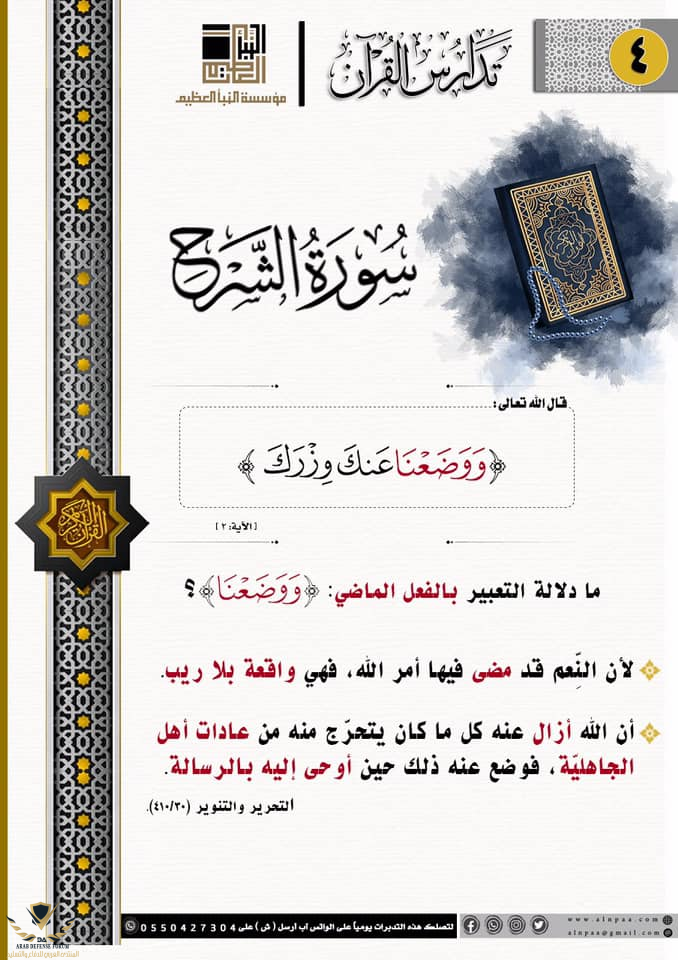 ٤
تَدَارُس القُرْآن
النبأ العظيم
مؤسسة النبأ العظيم
سُورَةُ الشَّرْحِ
قال الله تعالى:
﴿وَوَضَعْنَا عَنكَ وِزْرَكَ﴾
[الآية: ٢]
القرآن الكريم
ما دلالة التعبير بالفعل الماضي: ﴿وَوَضَعْنَا﴾؟
لأن النِّعم قد مضى فيها أمر الله، فهي واقعة بلا ريب.
أن الله أزال عنه كل ما كان يتحرّج منه من عادات أهل
الجاهليّة، فوضع عنه ذلك حين أوحى إليه بالرسالة.
التحرير والتنوير (٤١٠/٣٠).
لتصلك هذه التدبرات يومياً على الواتس آب أرسل (ش) على 0550427304
www.alnpaa.com
alnpaa@gmail.com
ARAB DEFENSE FORUM
المنتدى العربي للدفاع والتسليح